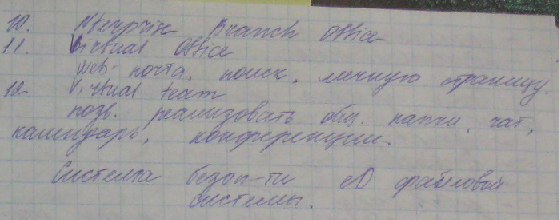 10. Enterprise Branch Office
11. Virtual Office
web-почта, поиск, личную страницу.
12. Virtual team
позв. реализовать общ. папки, чат,
календарь, конференции.
Система безоп-ти файловой
системы.